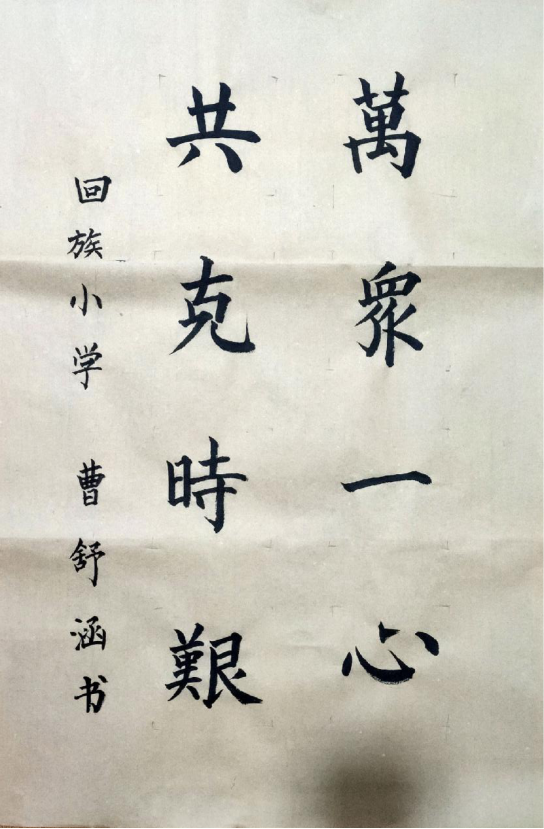 萬眾一心
共克時艱
回族小学 曹舒涵书